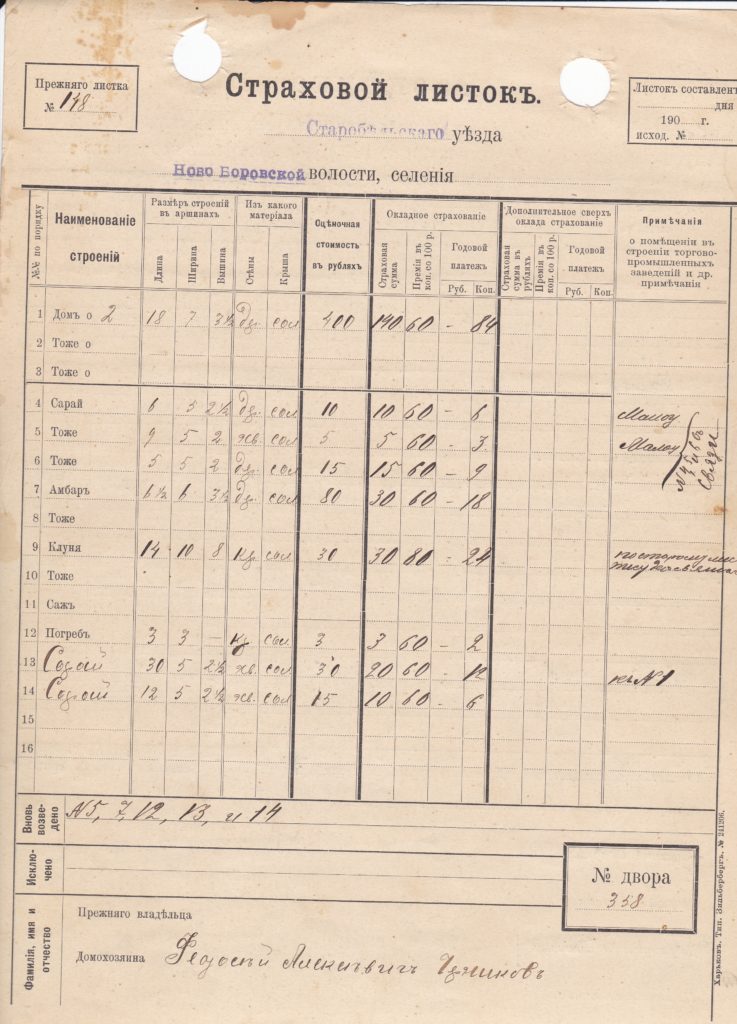 Прежняго листка
№ 148
Страховой листокъ.
Листокъ составленъ
дня
190 г.
исход. №
Старобѣльскаго уѣзда
Ново Боровской волости, селенія
№№ по порядку
Наименованіе строеній
Размѣръ строеній въ аршинахъ
Длина
Ширина
Вышина
Изъ какого матеріала
Стѣны
Крыша
Оцѣночная стоимость въ рубляхъ
Окладное страхованіе
Страховая сумма
Премія въ коп. со 100 р.
Годовой платежъ
Руб. Коп.
Дополнительное сверхъ оклада страхованіе
Страховая сумма въ рубляхъ
Премія въ коп. со 100 р.
Годовой платежъ
Руб. Коп.
Примѣчанія
о помѣщеніи въ строеніи торгово-промышленныхъ заведеній и др. примѣчанія
1 Домъ о 2 18 7 3½ др. сол 400 140 60 - 84
2 Тоже о
3 Тоже о
4 Сарай 6 5 2½ др. сол 10 10 60 - 6
5 Тоже 9 5 2 хв. сол 5 5 60 - 3
6 Тоже 5 5 2 др. сол 15 15 60 - 9
7 Амбаръ 6½ 6 3½ др. сол 80 30 60 - 18
8 Тоже
9 Клуня 14 10 8 сол 30 30 80 - 24
10 Тоже
11 Сажъ
12 Погребъ 3 3 - сол 3 3 60 - 2
13 Сарай 30 5 2½ хв. сол 30 20 60 - 12 къ №1
14 Сарай 12 5 2½ хв. сол 15 10 60 - 6
15
16
Вновь возведено
№5, 7, 12, 13, и 14
Исключено
№ двора
358
Фамилія, имя и отчество
Прежняго владѣльца
Домохозяина Федосѣй Алексѣевичъ
Харьковъ. Тип. Зильбербергъ. № 241206.